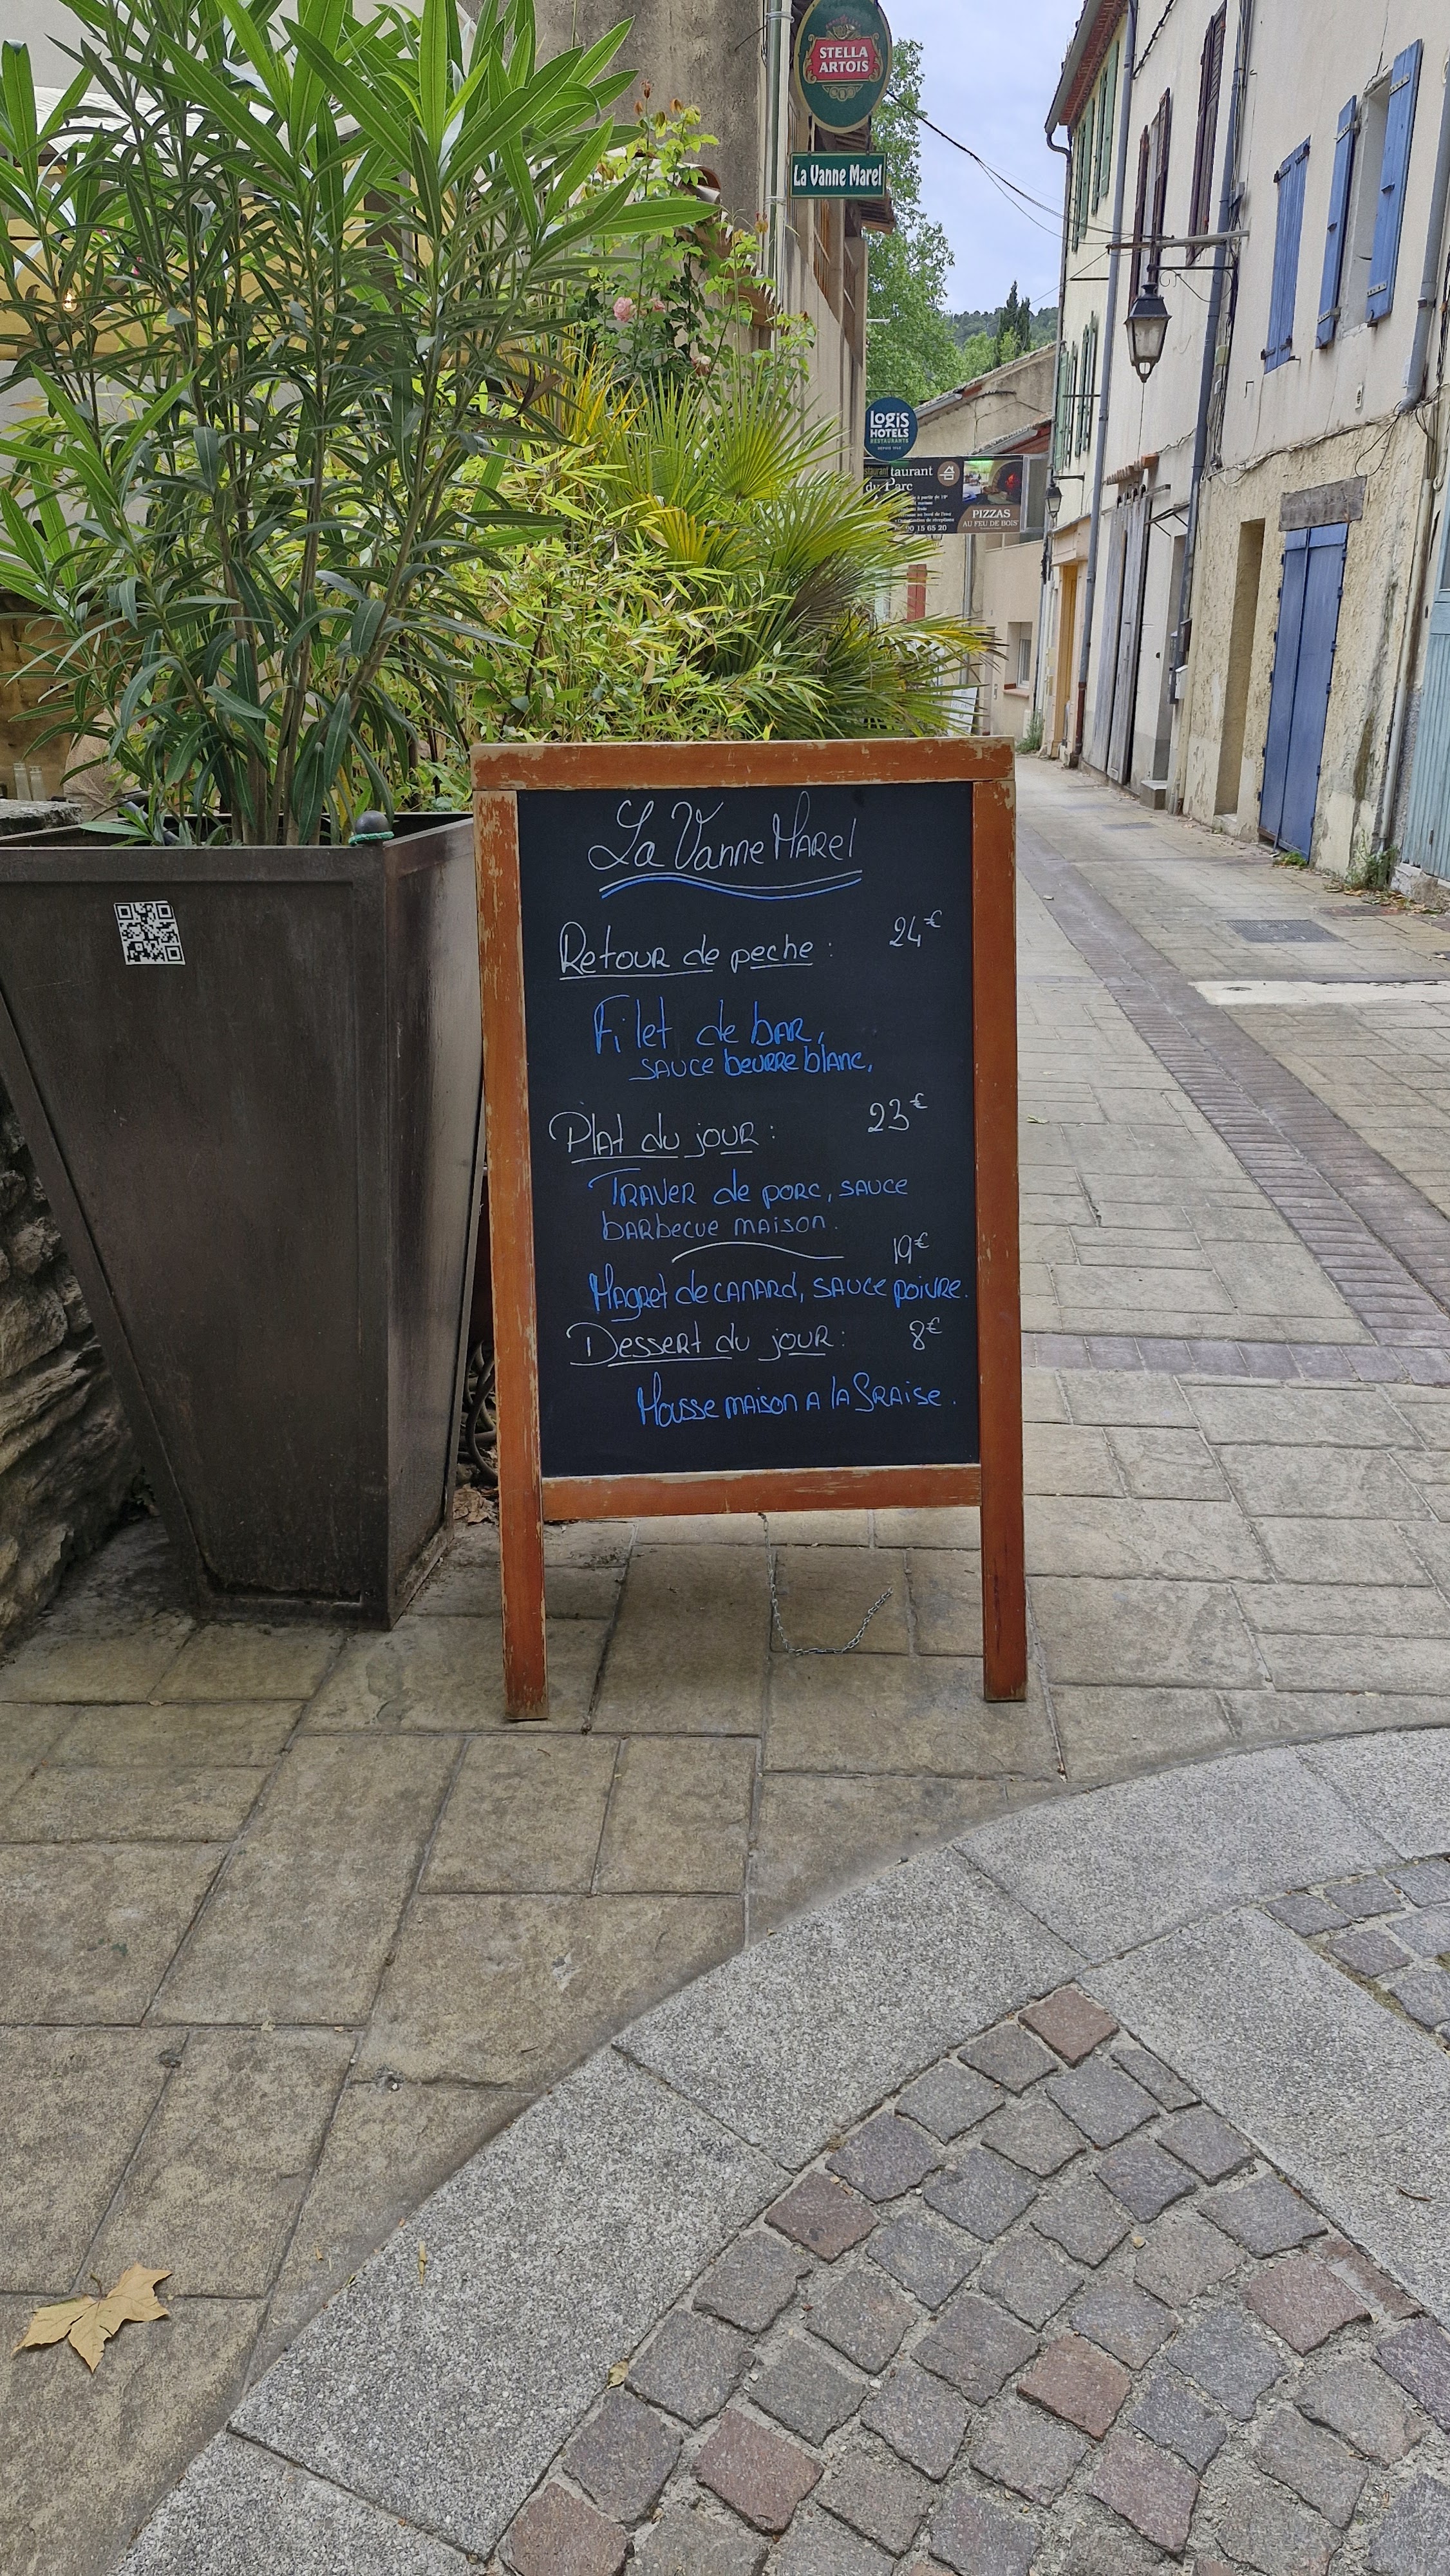 STELLA
ARTOIS
La Vanne Marel
LOGIS
HOTELS
RESTAURANTS
taurant
du Parc
PIZZAS
AU FEU DE BOIS
90 15 65 20
La Vanne Marel
Retour de peche : 24€
Filet de bar,
sauce beurre blanc,
Plat du jour : 23€
Traver de porc, sauce
barbecue maison.
19€
Magret de canard, sauce poivre.
Dessert du jour : 8€
Mousse maison a la fraise.